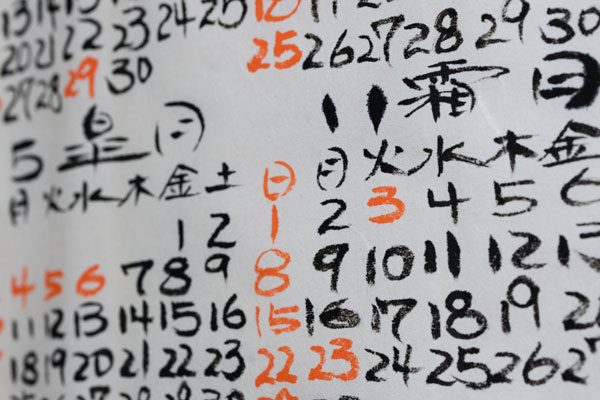 13 14 15 16 17 18
20 21 22 23 24 25
27 28 29 30
5 皐月
月 火 水 木 金 土
1 2
4 5 6 7 8 9
11 12 13 14 15 16
18 19 20 21 22 23
28 29 30
18
25 26 27 28 29 30
11 霜月
日 月 火 水 木 金
1 2 3 4 5 6
8 9 10 11 12 13
15 16 17 18 19
22 23 24 25 26 27